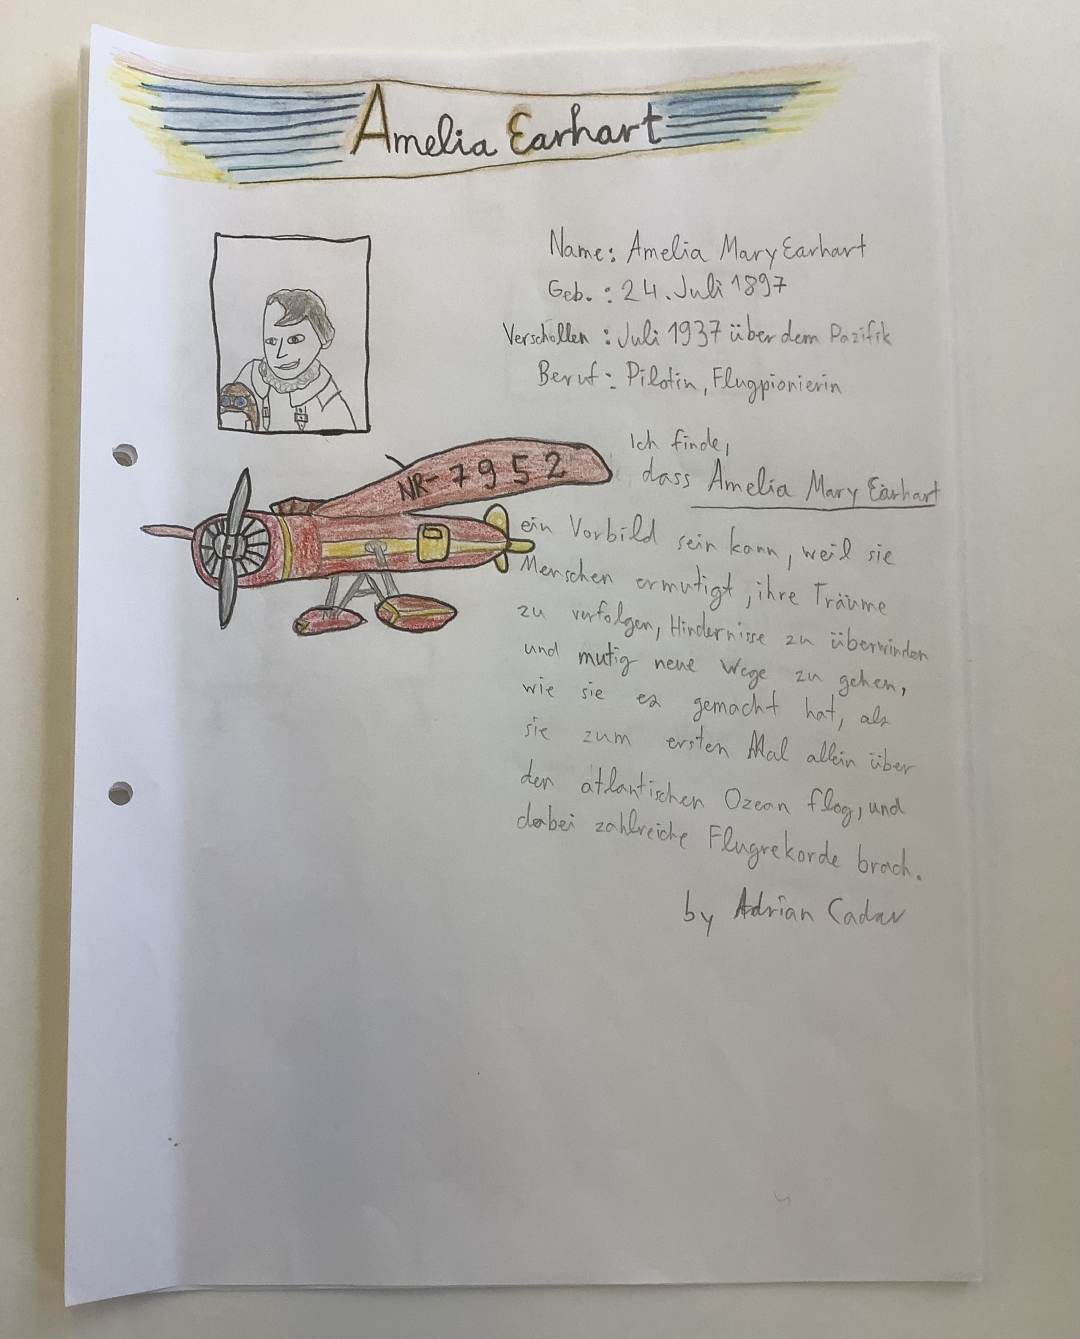 Amelia Earhart
Name: Amelia Mary Earhart
Geb.: 24. Juli 1897
Verschollen: Juli 1937 über dem Pazifik
Beruf: Pilotin, Flugpionierin
NR-7952
Ich finde,
dass Amelia Mary Earhart
ein Vorbild sein kann, weil sie
Menschen ermutigt, ihre Träume
zu verfolgen, Hindernisse zu überwinden
und mutig neue Wege zu gehen,
wie sie es gemacht hat, als
sie zum ersten Mal allein über
den atlantischen Ozean flog, und
dabei zahlreiche Flugrekorde brach.
by Adrian Cadar